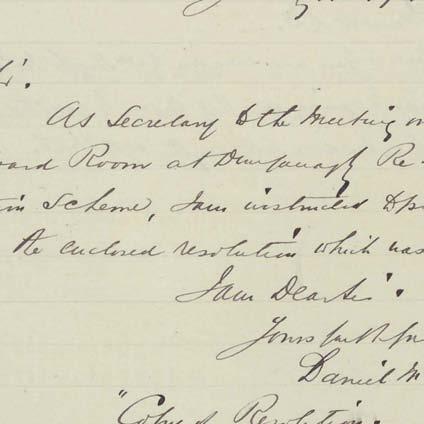 As Secretary to the Meeting
Board Room at Dungannon Re-
Scheme, I am instructed
the enclosed resolution which was
I am Dear Sir.
Yours
Daniel M
"Copy of Resolution.